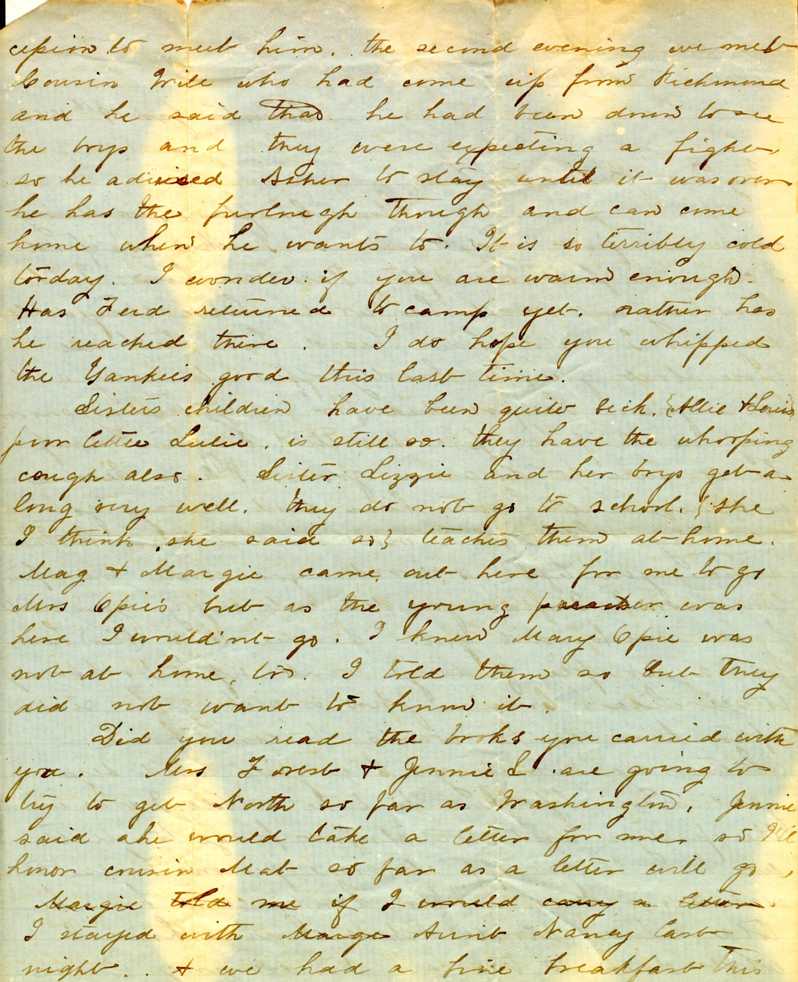 cepion to meet him. the second evening we met
Cousin Will who had come up from Richmond
and he said that he had been down to see
the boys and they were expecting a fight
so he advised Asher to stay until it was over
he has the furlough though and can come
home when he wants to. It is so terribly cold
to day. I wonder if you are warm enough.
Has Ferd returned to camp yet. rather has
he reached there. I do hope you whipped
the Yankees good this last time.
Sisters children have been quite sick. {Allie & Louis
poor little Lulie. is still so. they have the whooping
cough also. Sister Lizzie and her boys get a
long very well. they do not go to school. {she
I think she said so} teaches them at home.
Mag & Margie came out here for me to go
Mrs Opie's but as the young preacher was
here I would'nt go. I knew Mary Opie was
not at home, too. I told them so but they
did not want to know it.
Did you read the books you carried with
you. Mrs Forest & Jennie L. are going to
try to get North so far as Washington. Jennie
said she would take a letter for me. so I'll
honor cousin Mat so far as a letter will go,
Margie told me if I would carry a letter.
I stayed with Marge Aunt Nancy last
night.. & we had a fine breakfast this